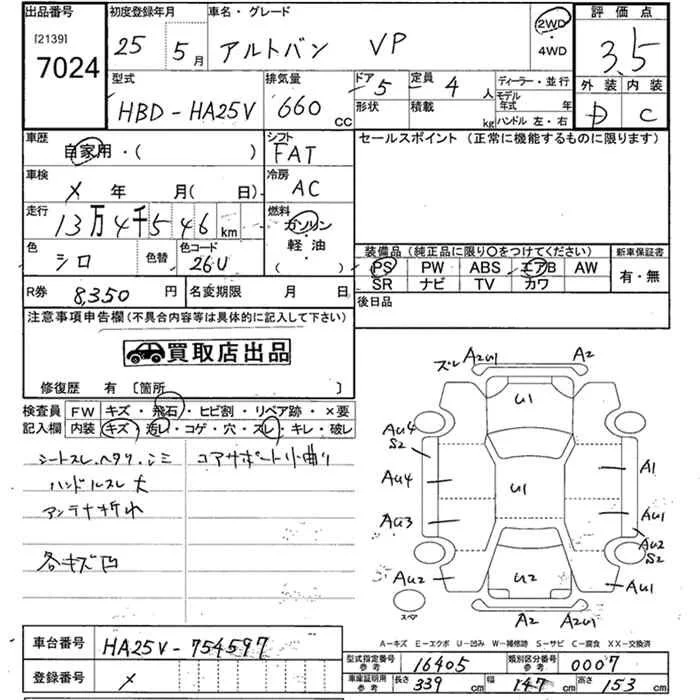 出品番号 初度登録年月 車名・グレード 評価点
[2139] 7024 25 5月 アルトバン VP 2WD・4WD 3.5
型式 排気量 ドア 5 定員 4 人 ディーラー・並行 外装 内装
HBD-HA25V 660 CC 形状 積載 kg モデル年式 年 ハンドル 左・右 D C
車歴 シフト セールスポイント (正常に機能するものに限ります)
自家用・( ) FAT
車検 冷房
× 年 月(日) AC
走行 燃料
13万4千546 km ガソリン・軽油
色 色替 色コード ( ) 装備品 (純正品に限り○をつけてください) 新車保証書
シロ 26U PS PW ABS エアB AW 有・無
SR ナビ TV カワ
R券 8,350 円 名変期限 月 日 後日品
注意事項申告欄(不具合内容等は具体的に記入して下さい)
買取店出品
修復歴 有 〔箇所 〕
検査員 FW キズ・飛石・ヒビ割・リペア跡・×要
記入欄 内装 キズ・汚レ・コゲ・穴・スレ・キレ・破レ
シートスレ.ヘタリ.シミ コアサポート小曲り
ハンドルスレ大
アンテナ折れ
各キズ凹
ズレ A2U1 A2
U1
AU4 S2
AU4 A1
U1
AU3 AU1
AU2 S2
AU2 U2 AU1
スペア
A2 A2U1
A-キズ E-エクボ U-凹み W-補修跡 S-サビ C-腐食 XX-交換済
車台番号 HA25V-754597
型式指定番号参考 16405 類別区分番号参考 0007
登録番号 ×
車庫証明用参考 長さ 339 cm 幅 147 cm 高さ 153 cm